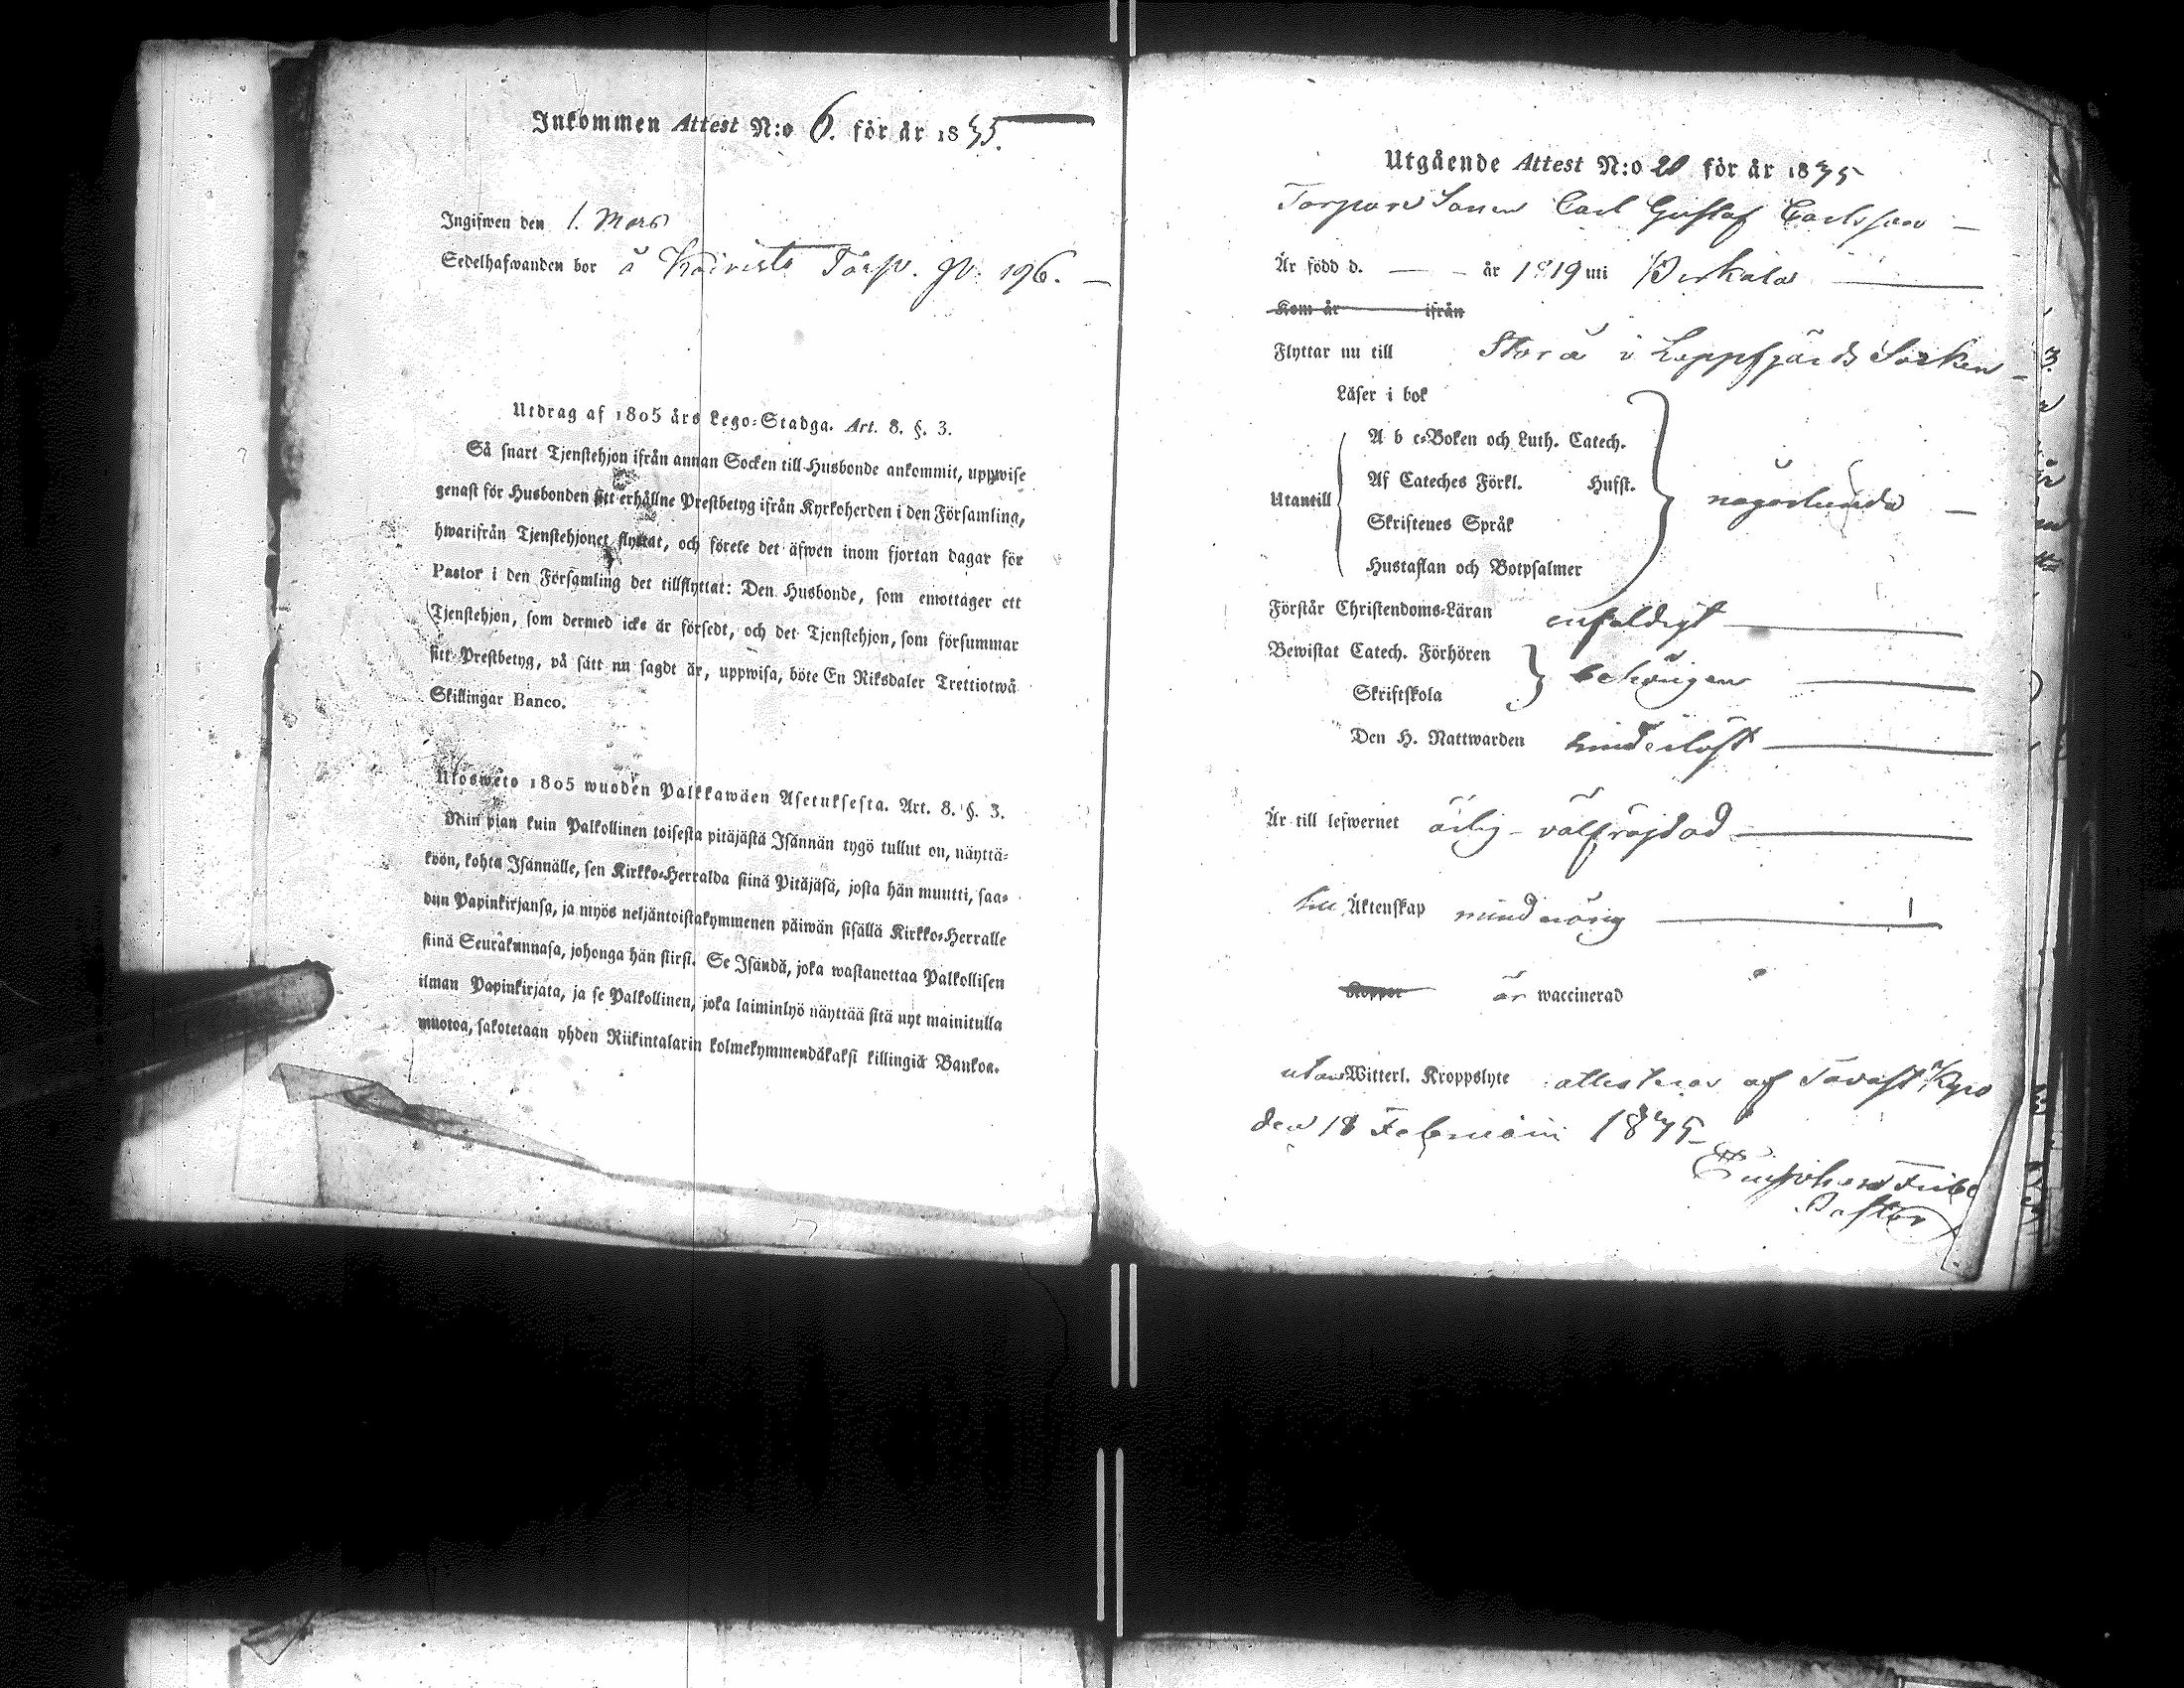 Inkommen Attest N:o 6. för år 1835.
Ingifwen den 1. Mars
Sedelhafwanden bor å Koivisto Torp. 196.
Utdrag af 1805 års Lego-Stadga. Art. 8. §. 3.
Så snart Tjenstehjon ifrån annan Socken till Husbonde ankommit, uppwise
genast för Husbonden sitt erhållne Prestbetyg ifrån Kyrkoherden i den Församling,
hwarifrån Tjenstehjonet flyttat, och förete det äfwen inom fjortan dagar för
Pastor i den Församling det tillflyttat: Den Husbonde, som emottager ett
Tjenstehjon, som dermed icke är försedt, och det Tjenstehjon, som försummar
sitt Prestbetyg, på sätt nu sagdt är, uppwisa, böte En Riksdaler Trettiotwå
Skillingar Banco.
Ulosweto 1805 wuoden Palkkawäen Asetuksesta. Art. 8. §. 3.
Niin pian kuin Palkollinen toisesta pitäjästä Isännän tygö tullut on, näyttä-
köön, kohta Isännälle, sen Kirkko-Herralda siinä Pitäjäsä, josta hän muutti, saa-
dun Papinkirjansa, ja myös neljäntoistakymmenen päiwän sisällä Kirkko-Herralle
siinä Seurakunnasa, johonga hän siirsi. Se Isändä, joka wastanottaa Palkollisen
ilman Papinkirjata, ja se Palkollinen, joka laiminlyö näyttää sitä nyt mainitulla
muotoa, sakotetaan yhden Riikintalarin kolmekymmendäkaksi killingiä Bankoa.
Utgående Attest N:o 20 för år 1835
Torpare Sonen Carl Gustaf Carlsson
Är född d. — år 1819 uti Birkala
Kom år ifrån
Flyttar nu till Storå i Lappfjärds Socken
Läser i bok
A b c-Boken och Luth. Catech.
Utantill Af Cateches Förkl. Husst. någorlunda
Skriftenes Språk
Hustaflan och Botpsalmer
Förstår Christendoms-Läran enfaldigt
Bewistat Catech. Förhören behörigen
Skriftskola
Den H. Nattwarden hinderlöst
Är till lefwernet ärlig - välfräjdad
till Äktenskap mindreårig
Koppor är waccinerad
utan Witterl. Kroppslyte attesterar af Tavast Kyro
den 18 Februarii 1835
Pastor